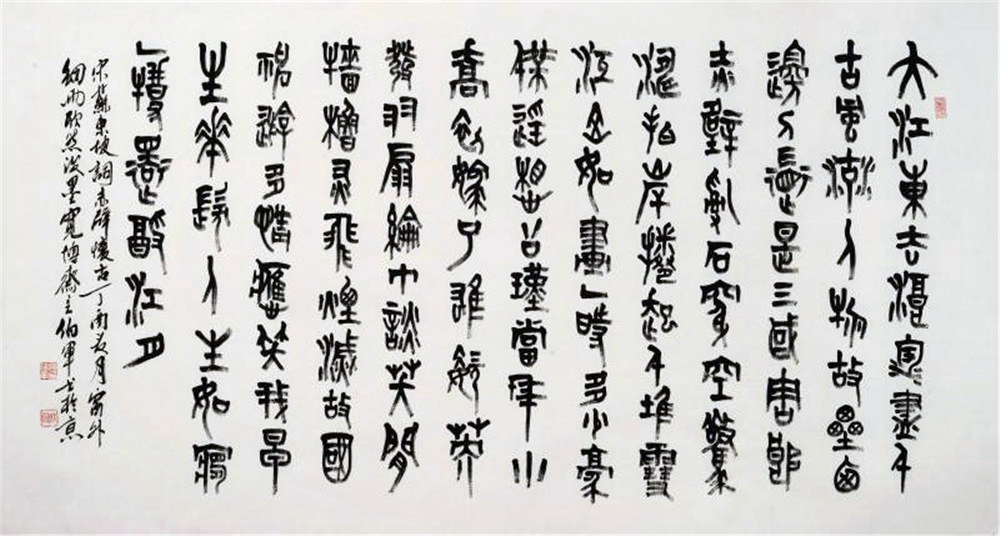 大江東去浪淘盡千
古風流人物故壘西
邊人道是三國周郎
赤壁亂石穿空驚
濤拍岸捲起千堆雪
江山如畫一時多少豪
傑遥想公瑾當年小
喬初嫁了雄姿英
發羽扇綸巾談笑間
檣櫓灰飛煙滅故國
神遊多情應笑我早
生華髮人生如夢
一樽還酹江月
宋蘇東坡詞赤壁懷古丁酉夏月窗外
細雨欣然潑墨寬博齋主伯軍書於京